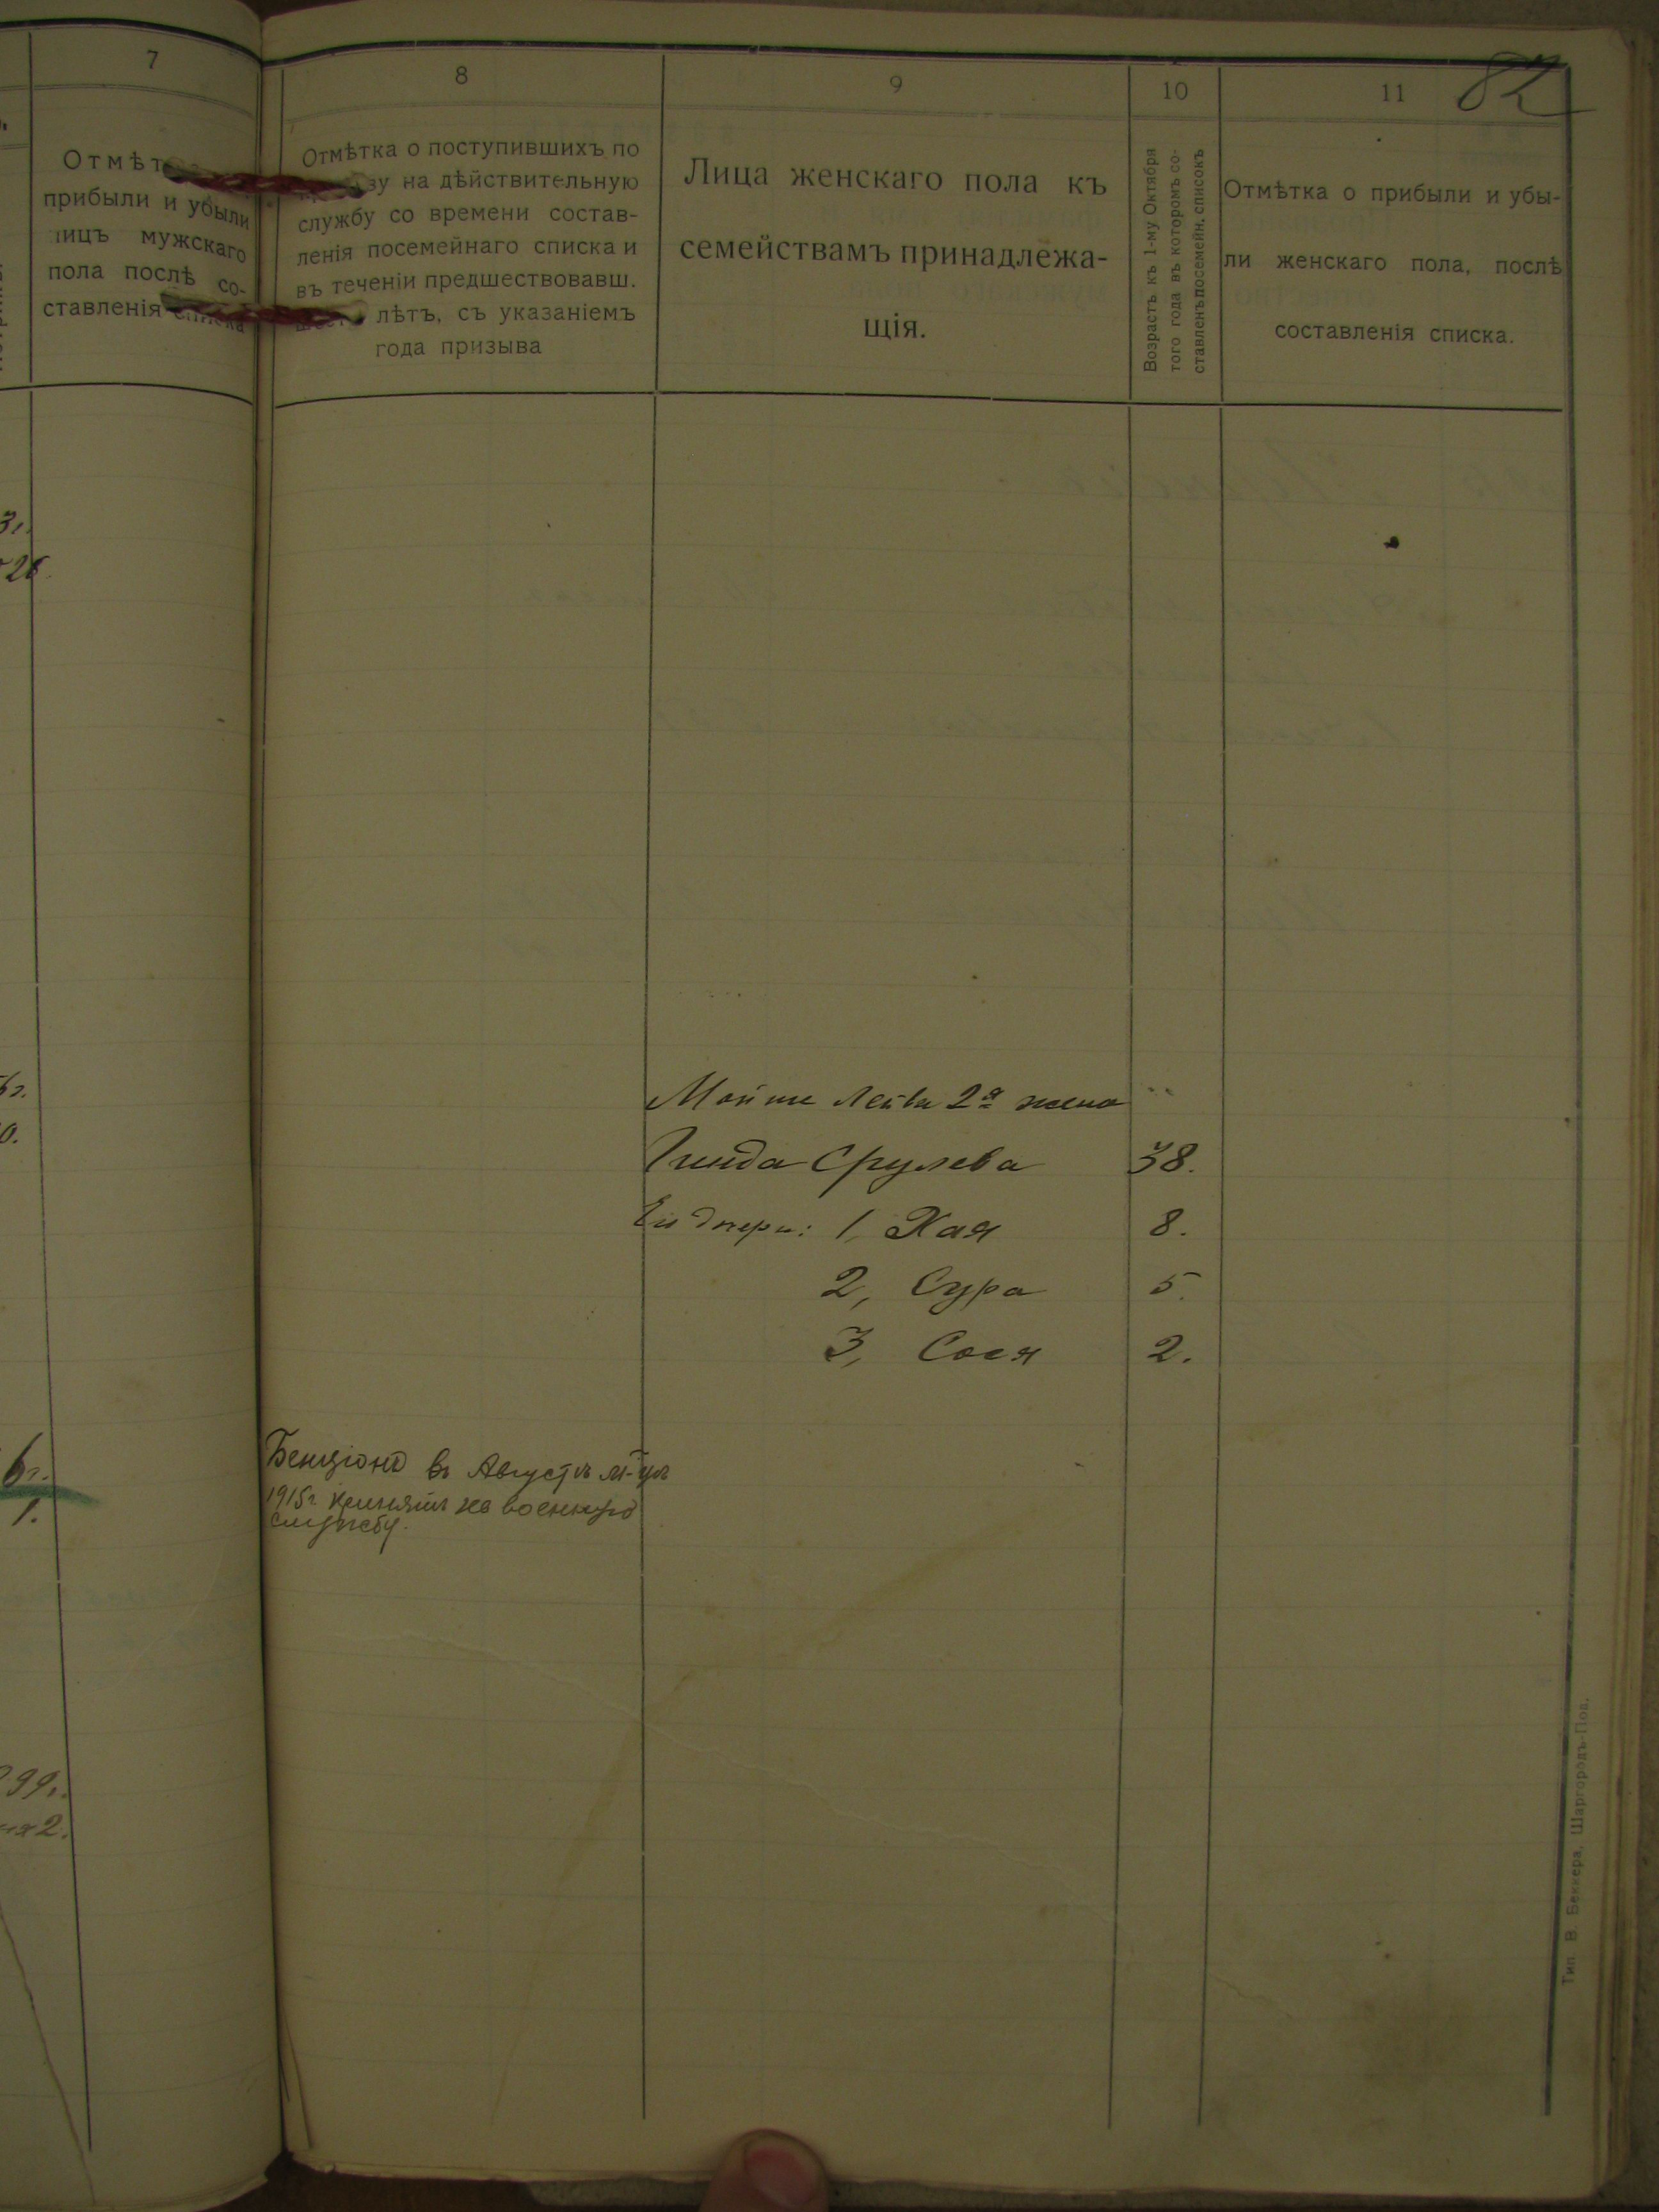 82
7
Отмѣт
прибыли и убыли
лицъ мужскаго
пола послѣ со-
ставленія списка
8
Отмѣтка о поступившихъ по
зу на дѣйствительную
службу со времени состав-
ленія посемейнаго списка и
въ теченіи предшествовавш.
лѣтъ, съ указаніемъ
года призыва
9
Лица женскаго пола къ
семействамъ принадлежа-
щія.
10
Возрастъ къ 1-му Октября
того года въ которомъ со-
ставленъ посемейн. списокъ
11
Отмѣтка о прибыли и убы-
ли женскаго пола, послѣ
составленія списка.
26
0.
6г.
1.
99г.
2.
Мойше Лейва 2я жена
Гинда Срулева 38.
Ея дочери: 1, Хая 8.
2, Сура 5.
3, Сося 2.
Бенціонъ въ Августѣ м-цѣ
1915г. принятъ на военную
службу.
Тип. В. Беккера, Шаргородъ-Под.